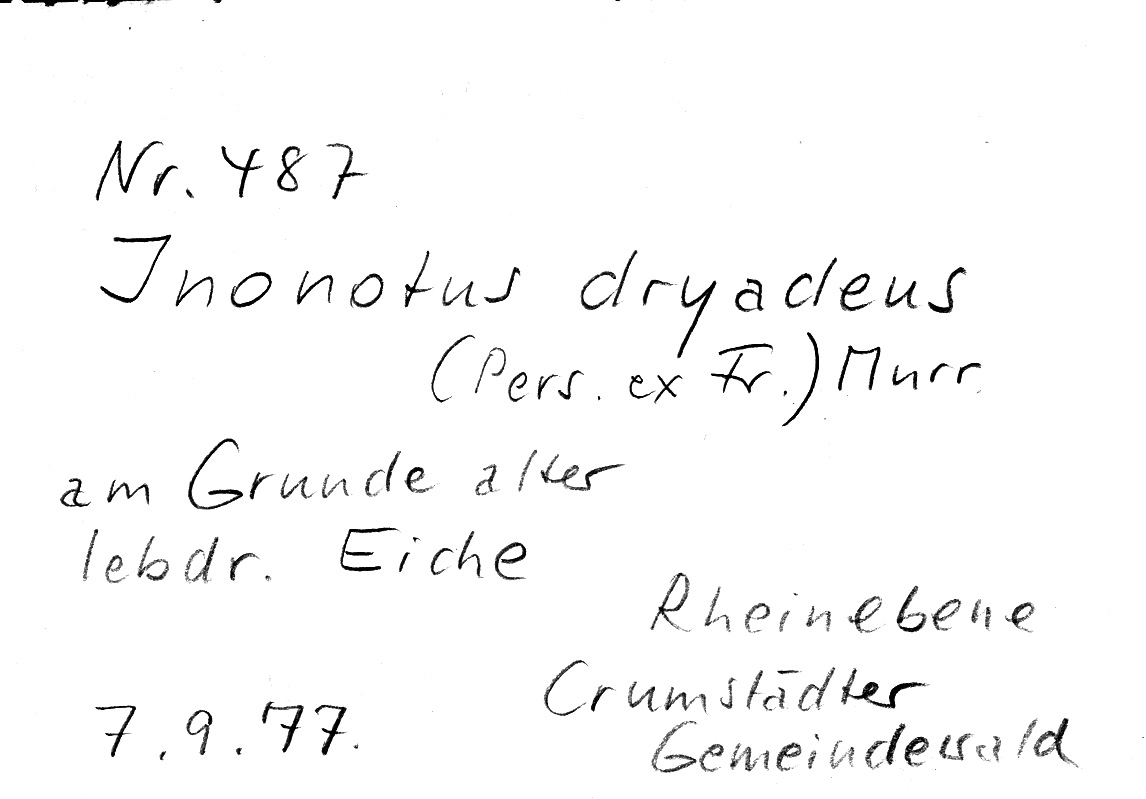 Nr. 487
Inonotus dryadeus
(Pers. ex Fr.) Murr.
am Grunde alter
lebdr. Eiche
Rheinebene
Crumstädter
Gemeindewald
7.9.77.